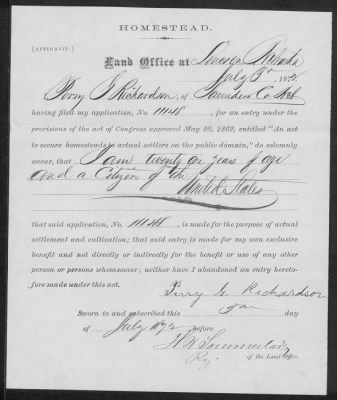 HOMESTEAD.
[AFFIDAVIT.]
Land Office at Lincoln Nebraska
July 5th, 187
Perry G Richardson, of Saunders Co Neb
having filed my application, No. 11148, for an entry under the
provisions of the act of Congress approved May 20, 1862, entitled "An act
to secure homesteads to actual settlers on the public domain," do solemnly
swear, that I am twenty one years of age
and a Citizen of the
United States
that said application, No. 11148, is made for the purpose of actual
settlement and cultivation; that said entry is made for my own exclusive
benefit and not directly or indirectly for the benefit or use of any other
person or persons whomsoever; neither have I abandoned an entry hereto-
fore made under this act.
Perry G. Richardson
Sworn to and subscribed this 5th day
of July 1872 before
Reg. of the Land Office.